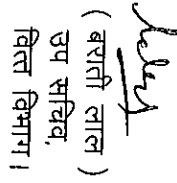 ( बराती लाल )
उप सचिव,
वित्त विभाग।